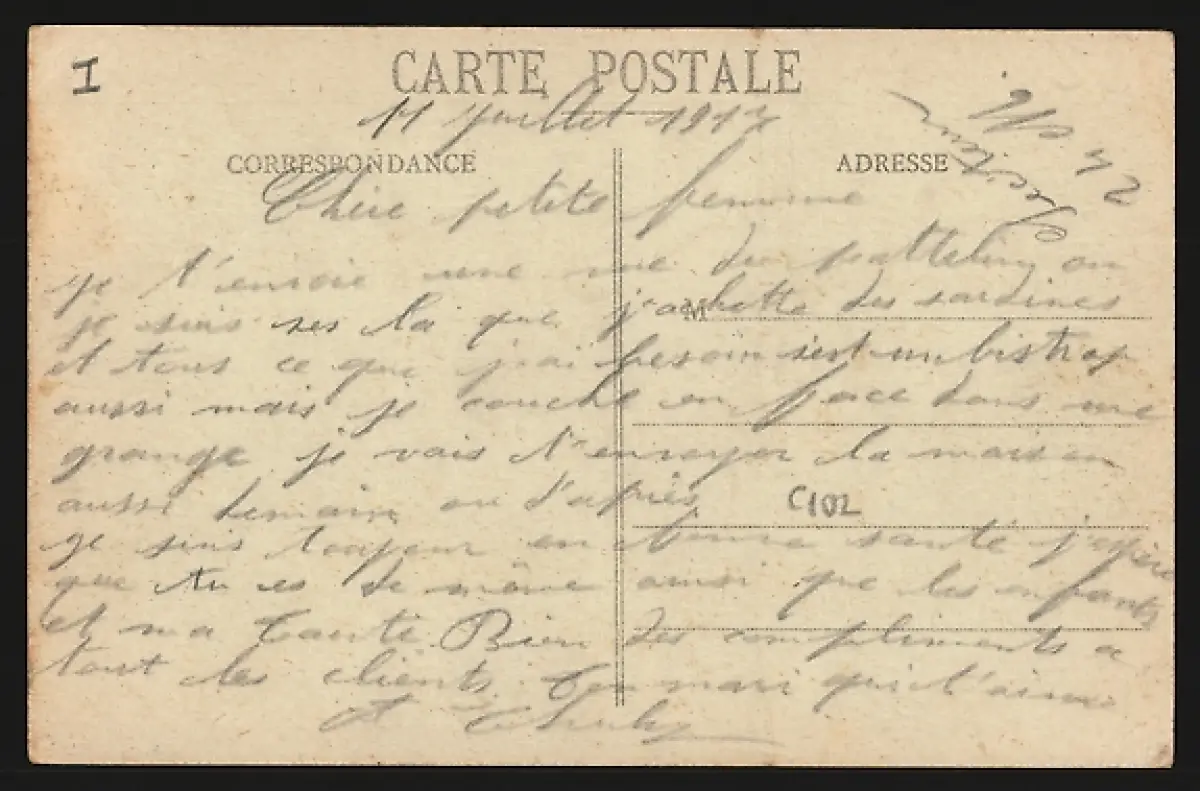 I
CARTE POSTALE
11 juillet 1917
CORRESPONDANCE
ADRESSE
Chère petite femme
je t'envoie une vue du patelin ou
je suis ses la que j'achette des sardines
M
et tous ce que j'ai besoin s'est un bistrop
aussi mais je couche en face dans une
grange je vais t'envoyer la maison
aussi demain ou d'après
C102
je suis toujour en bonne santé j'espère
que tu es de même ainsi que les enfants
et ma tante Bien des compliments a
tout les clients Ton mari qui t'aime